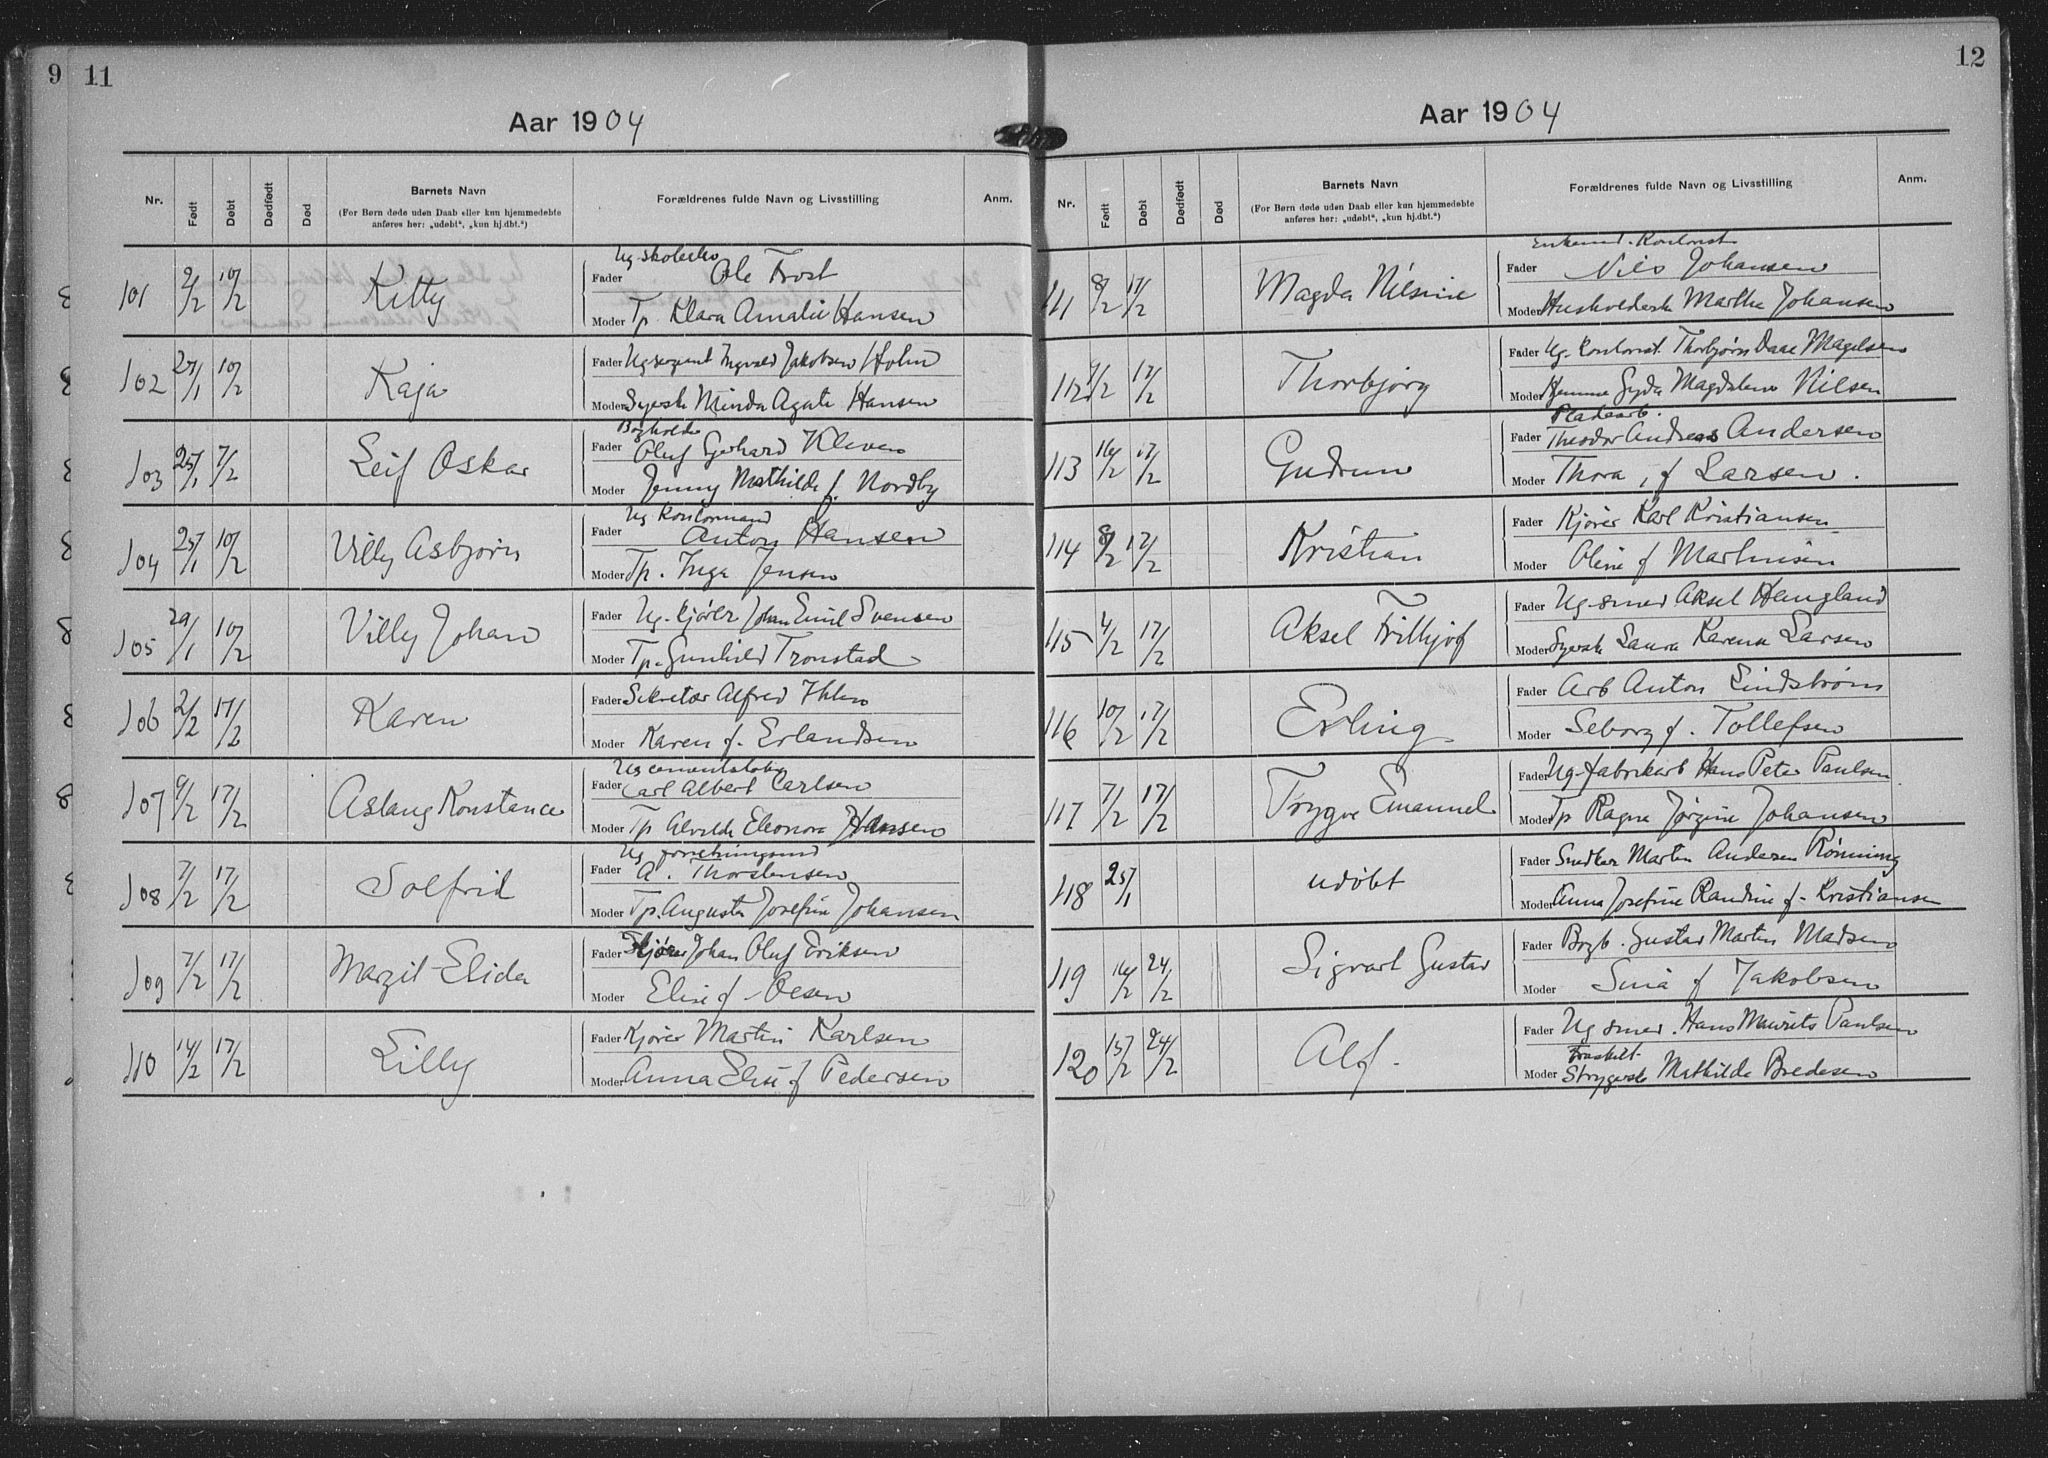 9 11
Aar 1904
Nr. Født Døbt Dødfødt Død Barnets Navn Forældrenes fulde Navn og Livsstilling Anm.
(For Børn døde uden Daab eller kun hjemmedøbte
anføres her: „udøbt“, „kun hj.dbt.“)
Ug
101 9/2 10/2 Kitty Fader Ole Frost
Moder Tp. Klara Amalie Hansen
102 27/1 10/2 Kaja Fader Ug sergent Ingvald Jakobsen Holm
Moder Syersk Minda Agate Hansen
Bogholder
103 25/1 7/2 Leif Oskar Fader Oluf Gerhard Kleven
Moder Jenny Mathilde f. Nordby
Ug kontormand
104 25/1 10/2 Villy Asbjørn Fader Anton Hansen
Moder Tp. Inga Jensen
105 29/1 10/2 Villy Johan Fader Ug. kjører Johan Emil Svensen
Moder Tp. Gunhild Tronstad
106 2/2 17/2 Karen Fader Sekretær Alfred Ihlen
Moder Karen f. Erlandsen
Ug cementstøber
107 9/2 17/2 Aslaug Konstance Fader Carl Albert Carlsen
Moder Tp Alvilde Eleonora Hansen
Ug forretningsmd
108 7/2 17/2 Solfrid Fader A. Thorstensen
Moder Tp. Augusta Josefine Johansen
109 7/2 17/2 Margit Elida Fader Kjører Johan Oluf Eriksen
Moder Elise f. Olsen
110 14/2 17/2 Lilly Fader Kjører Martin Karlsen
Moder Anna Elise f Pedersen
12
Aar 1904
Nr. Født Døbt Dødfødt Død Barnets Navn Forældrenes fulde Navn og Livsstilling Anm.
(For Børn døde uden Daab eller kun hjemmedøbte
anføres her: „udøbt“, „kun hj.dbt.“)
Enkemd. Kontorist
111 8/2 17/2 Magda Nilsine Fader Nils Johansen
Moder Husholderske Marthe Johansen
112 9/2 17/2 Thorbjørg Fader Ug. Kontorist Thorbjørn Daae Magelsen
Moder Hjemme Gyda Magdalene Nilsen
Pladearb.
113 16/2 17/2 Gudrun Fader Theodor Andreas Andersen
Moder Thora, f Larsen.
114 8/2 17/2 Kristian Fader Kjører Karl Kristiansen
Moder Oline f Martinsen
115 4/2 17/2 Aksel Frithjof Fader Ug. smed Aksel Haugland
Moder Syersk Laura Karena Larsen
116 10/2 17/2 Erling Fader Arb Anton Lindstrøm
Moder Seborg f. Tollefsen
117 7/2 17/2 Trygve Emanuel Fader Ug. fabrikarb Hans Peter Paulsen
Moder Tp Ragna Jørgine Johansen
118 25/1 udøbt Fader Snedker Martin Andersen Rønning
Moder Anna Josefine Randine f. Kristiansen
119 16/2 24/2 Sigvart Gustav Fader Bogb. Gustav Martin Madsen
Moder Sina f Jakobsen
120 15/2 24/2 Alf. Fader Ug smed. Hans Maurits Paulsen
Fraskilt
Moder Strygersk Mathilde Bredesen